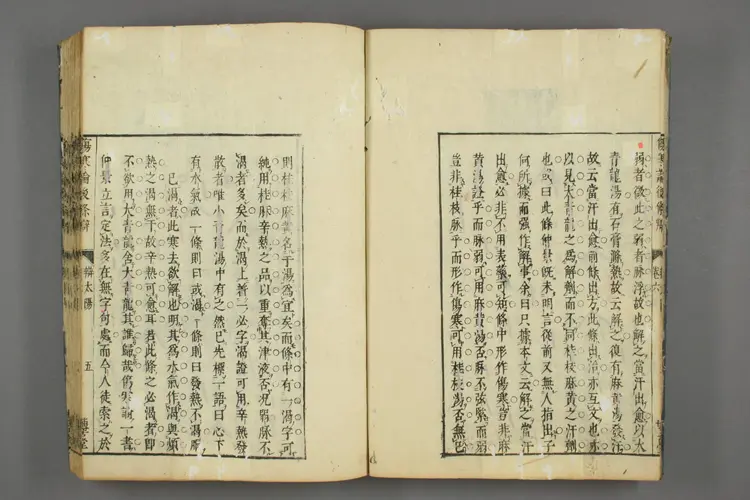 弱者微此之弱者脉浮故也解之當汗出愈以太
青龍湯有石膏除熱故云解之復有麻黃湯發汗
故云當汗出愈前條出方此條出治亦互文也亦
以見大青龍之為解劑而不同桂枝麻黃之汗劑
也或曰此條仲景既未明言從前又無人指出子
何所據而強作解事余曰只據本文云解之當汗
出愈必非不用表藥可知條中形作傷寒豈非麻
黃湯證乎而脉弱可用麻黃湯否脉不弦緊而弱
豈非桂枝脉乎而形作傷寒可用桂枝湯否無已
則桂枝麻黃各半湯為宜矣而條中有一渴字可
純用桂麻辛熱之品以重奪其津液否況弱脉不
渴者多矣而於渴上著一必字渴證可用辛熱發
散者惟小青龍湯中有之然已先標一語曰心下
有水氣故一條則曰或渴一條則曰發熱不渴服湯
已渴者此寒去欲解也明其為水氣作渴與煩
熱之渴無干故辛熱可愈耳若此條之必渴者即
不欲用大青龍舍大青龍其誰歸哉傷寒論一書
仲景立言定法多在無字句處而今人徒索之於
傷寒論後條辨
辨太陽
五